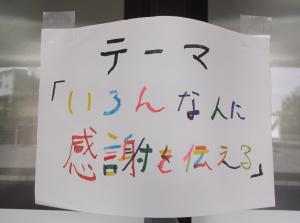 テーマ
「いろんな人に
感謝を伝える」